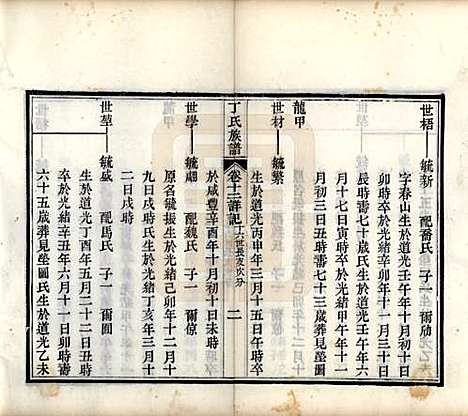 世梧——毓新 配喬氏 子一 爾勛
字春山生於道光壬午年十月初十日
卯時卒於光緒己卯年十一月初三日
辰時壽七十歲氏生於道光壬午年六
月十七日寅時卒於光緒 年十一
月初三日丑時壽七十三歲葬見塋圖
龍甲
世材——毓繁
生於道光丙申年三月十五日午時卒
丁氏族譜 卷十二詳記 二
於咸豐辛酉年十月初十日未時
世學——毓 配魏氏 子一 爾倞
原名毓振生於光緒己卯年十二月十
九日戌時氏生於光緒丁亥年三月十
二日戌時
世堃——毓盛 配馬氏 子一 爾
生於道光丁酉年五月二十二日丑時
卒於光緒辛丑年六月十一日卯時壽
六十五歲葬見塋圖氏生於道光乙未